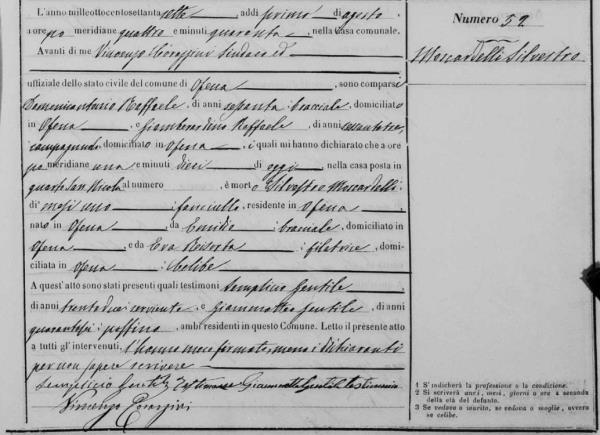 L'anno milleottocentosettantasette, addì primo di agosto
a ore pomeridiane quattro e minuti quaranta, nella Casa comunale.
Avanti di me Vincenzo Corazzini Sindaco ed
uffiziale dello stato civile del comune di Ofena, sono comparsi
Domenicantonio Raffaele, di anni sessanta, bracciale, domiciliato
in Ofena, e Giambernardino Raffaele, di anni
campagnuolo, domiciliato in Ofena, i quali mi hanno dichiarato che a ore
pomeridiane una e minuti dieci di oggi nella casa posta in
quarto San Nicola al numero, è morto Silvestro Moscardelli
di mesi uno, fanciullo, residente in Ofena,
nato in Ofena, da Emidio, bracciale, domiciliato in
Ofena, e da Eva, filatrice, domi-
ciliata in Ofena, celibe
A quest'atto sono stati presenti quali testimoni Semplicio Gentile,
di anni trentadue serviente, e Giammatteo Gentile, di anni
quarantasei, ambi residenti in questo Comune. Letto il presente atto
a tutti gl'intervenuti, l'hanno meco firmato, meno i dichiaranti
per non sapere scrivere
Semplicio Gentile Testimone Giammatteo Gentile testimonio
Vincenzo Corazzini
Numero 52
Moscardelli Silvestro
1 S'indicherà la professione o la condizione.
2 Si scriverà anni, mesi, giorni o ore a seconda
della età del defunto.
3 Se vedovo o marito, se vedova o moglie, ovvero
se celibe.